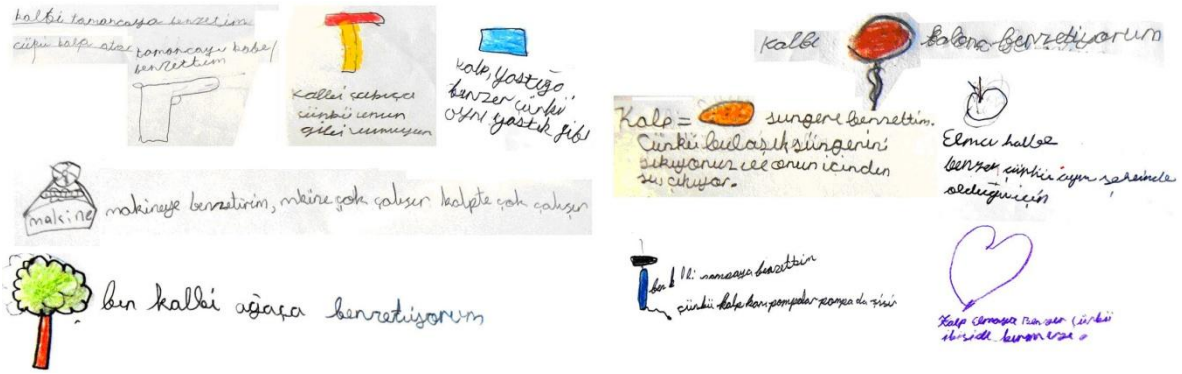 kalbi tamancaya benzetirim
çüpü kalp atar
tamancaya kalbe/
benzettim
Kalbi çabıça
çünkü unun
gibi yumuşun
kalp, yastığa
benzer çünkü
aynı yastık gibi
makine
makineye benzetirim, mkine çok çalışır kalpte çok çalışır
ben kalbi ağaça benzetiyorum
Kalbi balona benzetiyorum
Kalp = sungere benzettim.
Çünkü bulaşık süngerini
sıkıyoruz ve onun içinden
su çıkıyor.
Elma kalbe
benzer çünkü aynı şekinde
olduğu için
ben pompaya benzettim
çünkü kalp kan pompalar pompa da şişir
Kalp elmaya benzer çünkü
ikiside kırmızı.